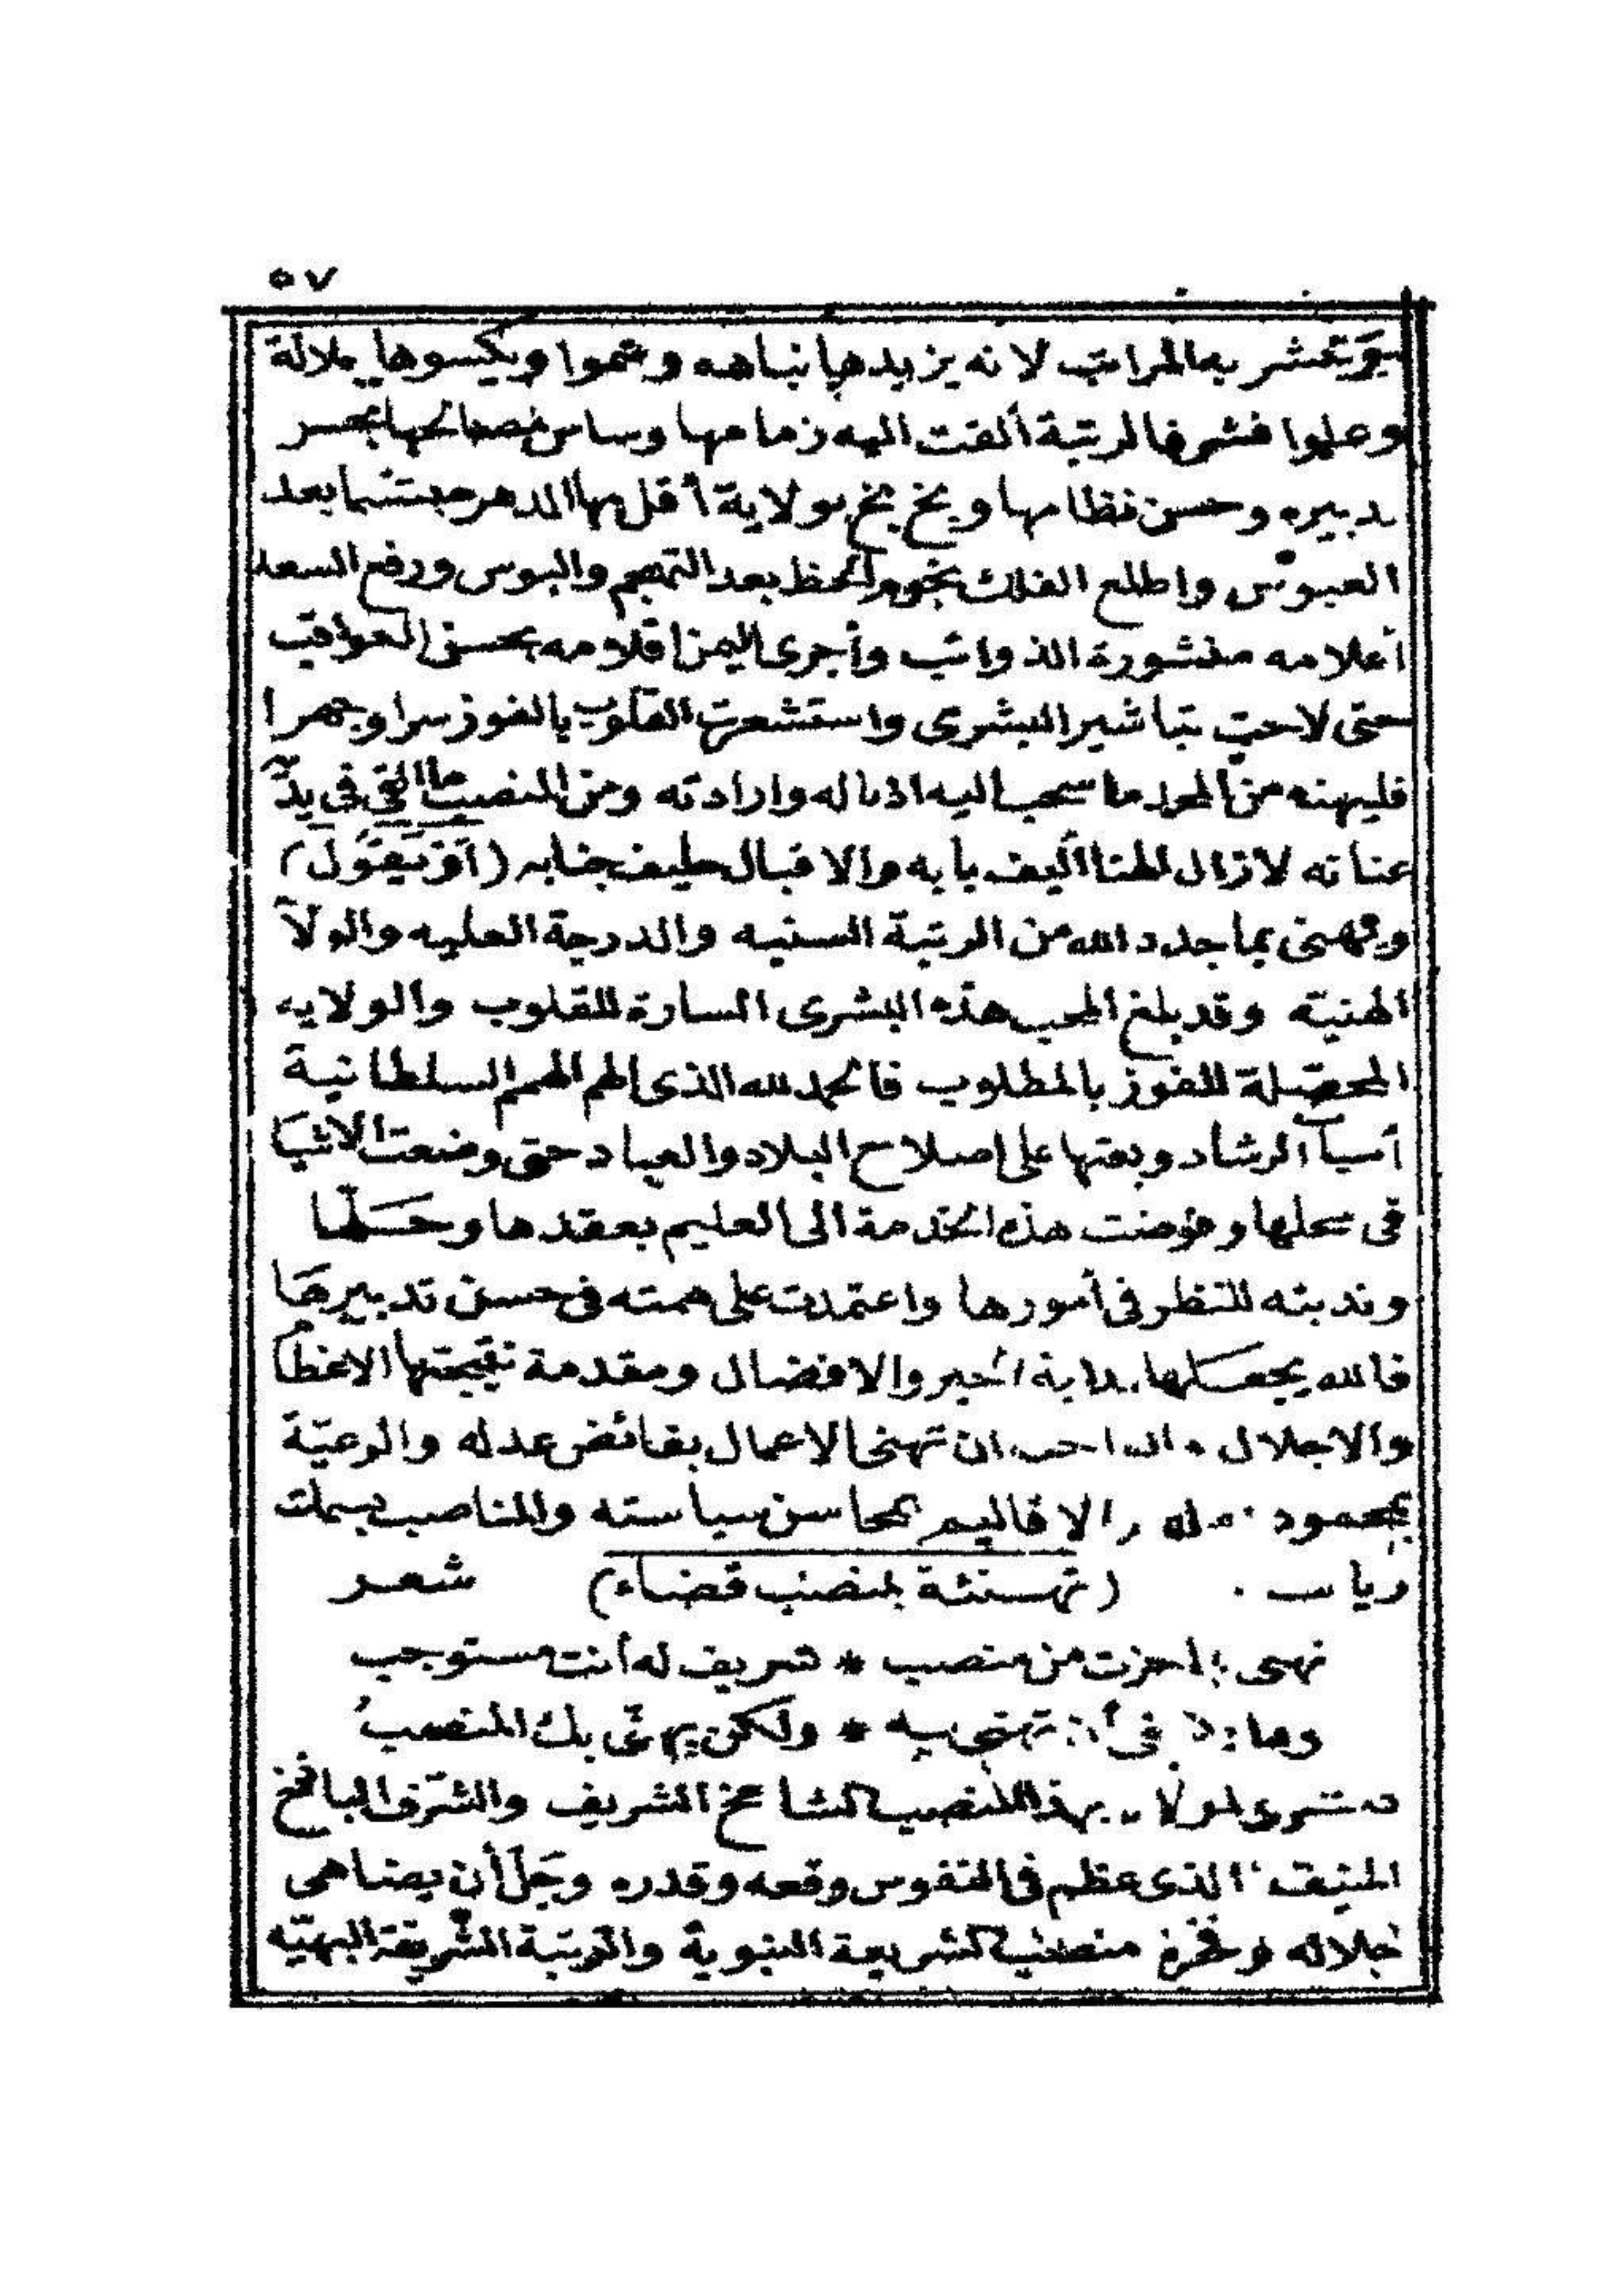 ٥٧
المراتب لانه يزيدها نباهه وسموا ويكسوها جلالة
وعلوا فشرفا لرتبة ألقت اليه زمامها وساس مصالحها بحسن
تدبيره وحسن نظامها وبخ بخ بولاية أقبل بها الدهر مبتسما بعد
العبوس واطلع الفلك نجوم الحظ بعد التجهم والبوس ورفع السعد
أعلامه منشورة الذوائب وأجرى اليمن اقلامه بحسن العواقب
حتى لاحت تباشير البشرى واستشعرت القلوب بالفوز سرا وجهرا
فليهنه من المجد ما سحب اليه اذياله وارادته ومن المنصب ما القى فى يده
عنانه لا زال الهنا أليف بابه والاقبال حليف جنابه (أو يقول)
ويهنى بما جدد الله من الرتبة السنيه والدرجة العليه والولاية
الهنيّه وقد بلغ المحب هذه البشرى السارة للقلوب والولايه
المحصّلة للفوز بالمطلوب فالحمد لله الذى الهم الهمم السلطانية
أسباب الرشاد وبعثها على اصلاح البلاد والعباد حتى وضعت الاشيا
فى محلها وفوضت هذه الخدمة الى العليم بعقدها وحلّها
وندبته للنظر فى أمورها واعتمدت على همته فى حسن تدبيرها
فالله يجعلها بداية الخير والافضال ومقدمة نتيجتها الاعظام
والاجلال ان تهنى الاعمال بفائض عدله والرعيّة
بمحمود والاقاليم بمحاسن سياسته والمناصب بسمات
(تهنئة بمنصب قضاء) شعر
تهنى بما حزت من منصب * شريف له أنت مستوجب
وما فى أن تهنى به * ولكن يهنى بك المنصب
بهذا المنصب الشامخ الشريف والشرف الباذخ
المنيف الذى عظم فى النفوس وقعه وقدره وجلّ أن يضاهى
جلاله وفخره منصب الشريعة النبوية والرتبة الشريفة البهيّه